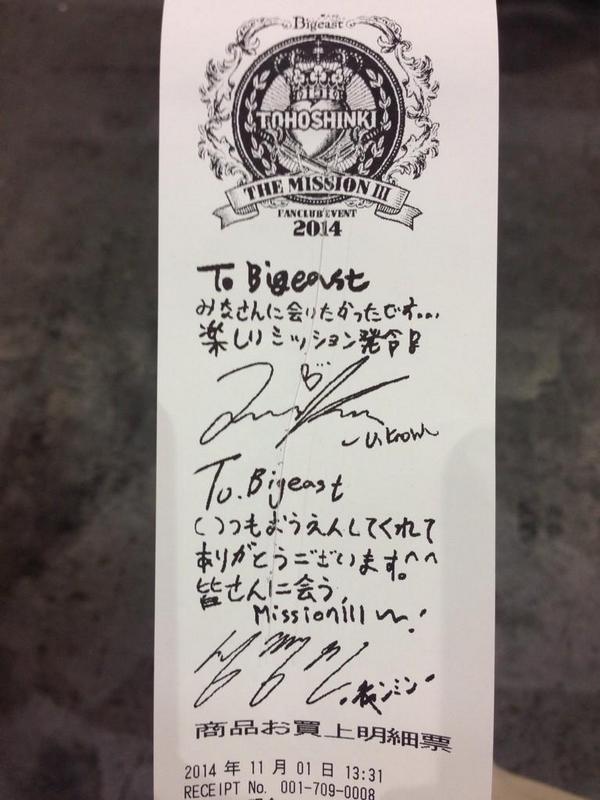 Bigeast
TOHOSHINKI
THE MISSION III
FANCLUB EVENT
2014
To Bigeast
みなさんに会いたかったです...
楽しいミッション発令!!
U know
To. Bigeast
いつもおうえんしてくれて
ありがとうございます。^^
皆さんに会う、
Mission!!!
商品お買上明細票
2014 年 11 月 01 日 13:31
RECEIPT No. 001-709-0008